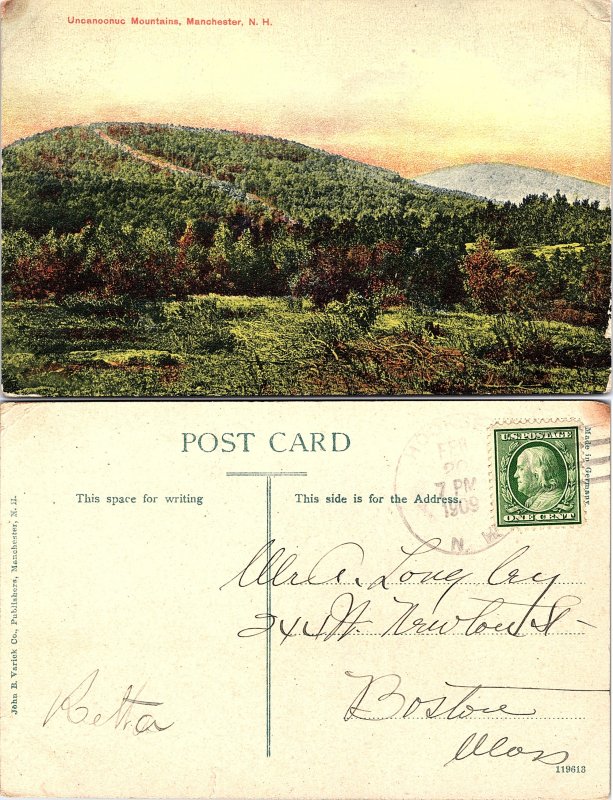 Uncanoonuc Mountains, Manchester, N. H.
POST CARD
This space for writing
This side is for the Address.
FEB
20
7 PM
1909
N.
U.S. POSTAGE
ONE CENT
Made in Germany.
Mr A. Longley
244 W. Newton St -
Boston
Mass
Retta
John B. Varick Co., Publishers, Manchester, N. H.
119613